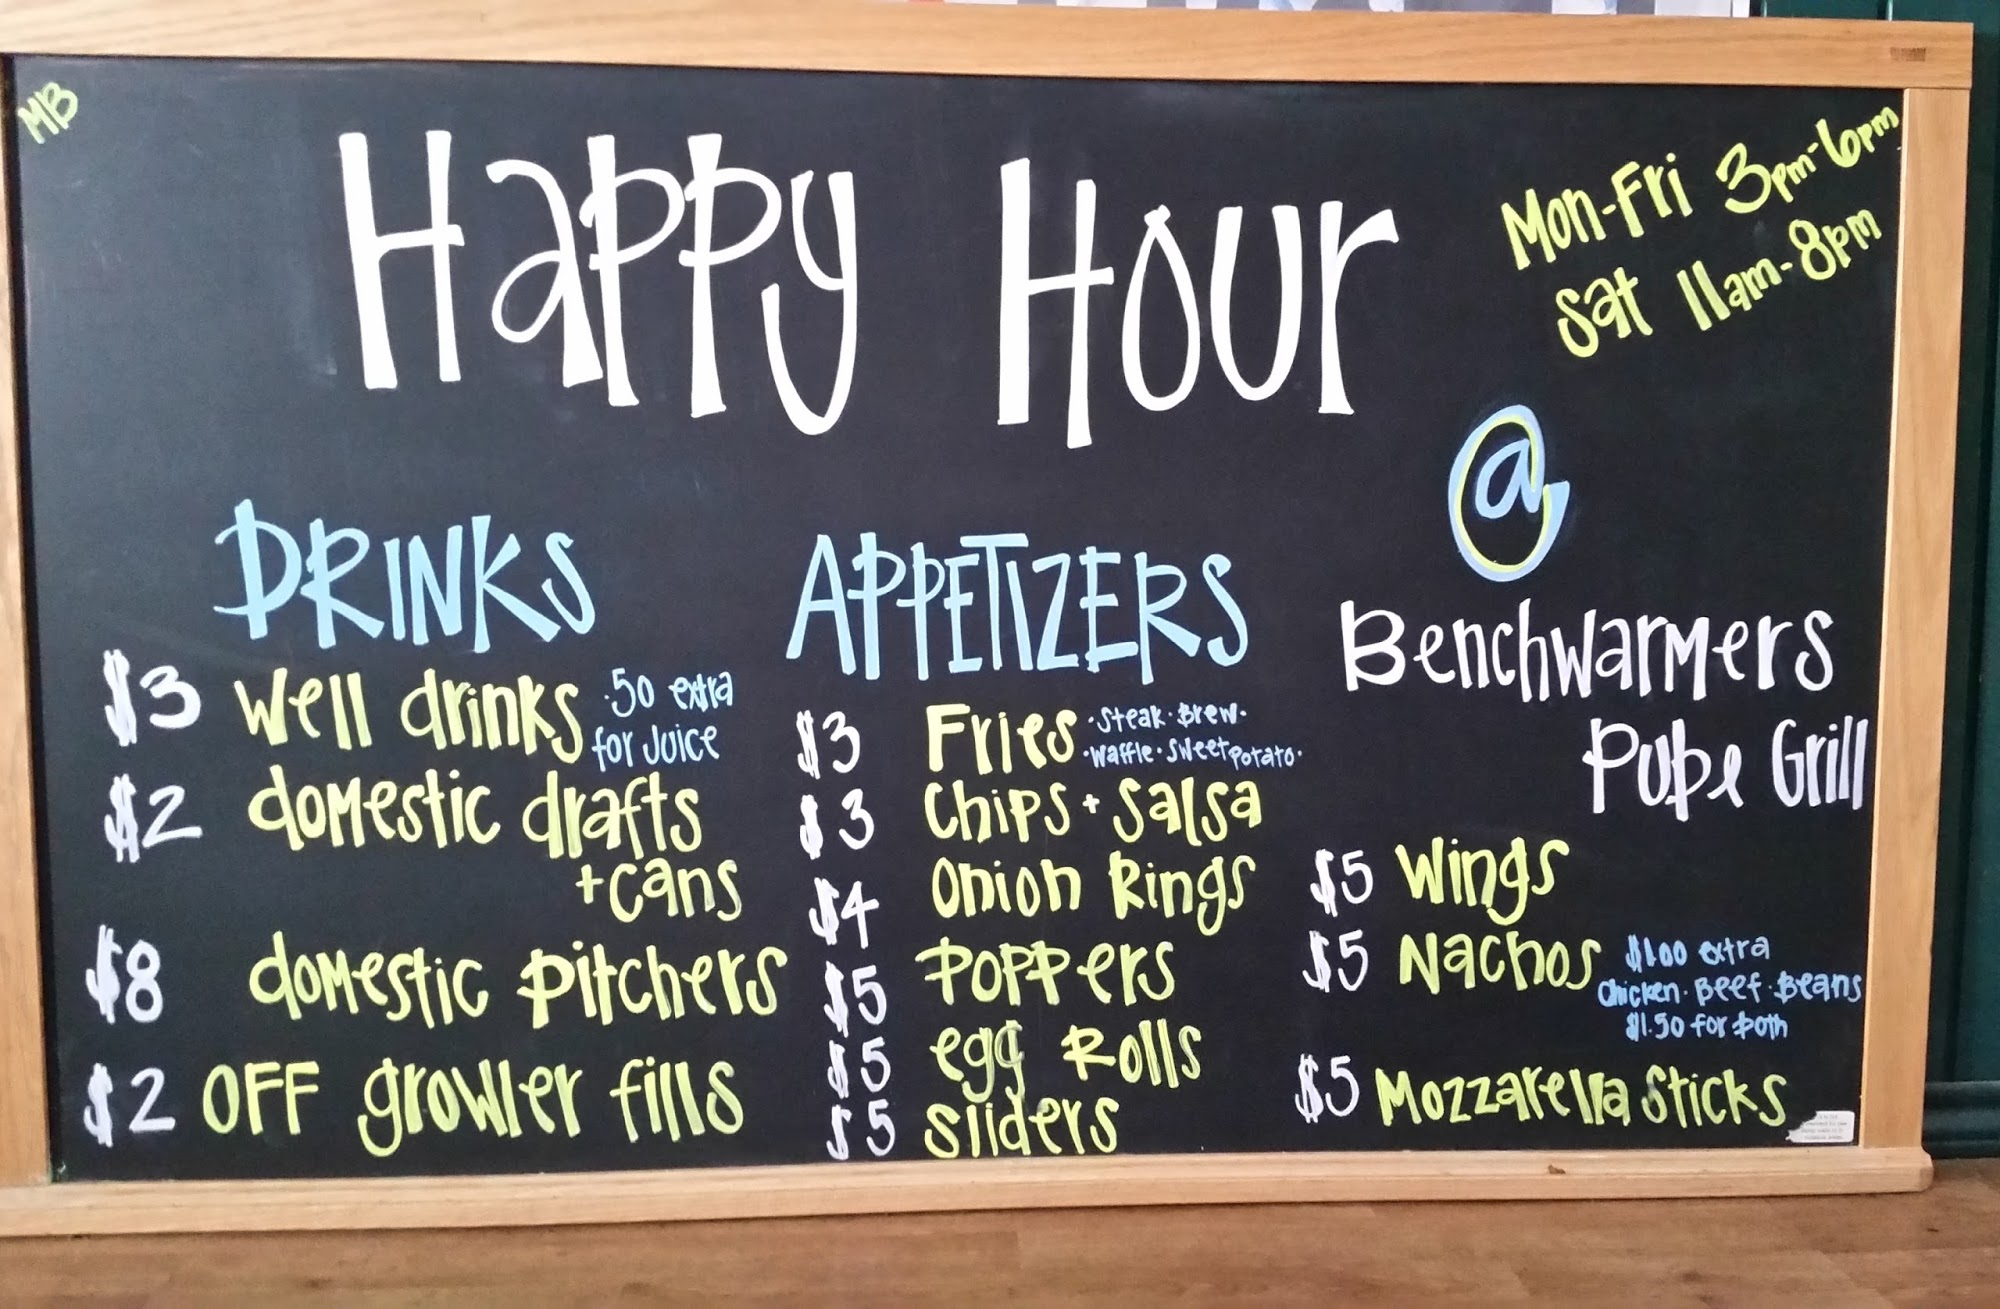 MB
Happy Hour
Mon-Fri 3pm-6pm
Sat 11am-8pm
@
Benchwarmers
Pub & Grill
DRINKS
$3 Well drinks .50 extra
for Juice
$2 domestic drafts
+ cans
$8 domestic pitchers
$2 OFF growler fills
APPETIZERS
$3 Fries · Steak · Brew ·
· Waffle · Sweet Potato ·
$3 Chips + Salsa
$4 Onion Rings
$5 Poppers
$5 egg Rolls
$5 Sliders
$5 Wings
$5 Nachos $1.00 extra
Chicken · Beef · Beans
$1.50 for both
$5 Mozzarella Sticks